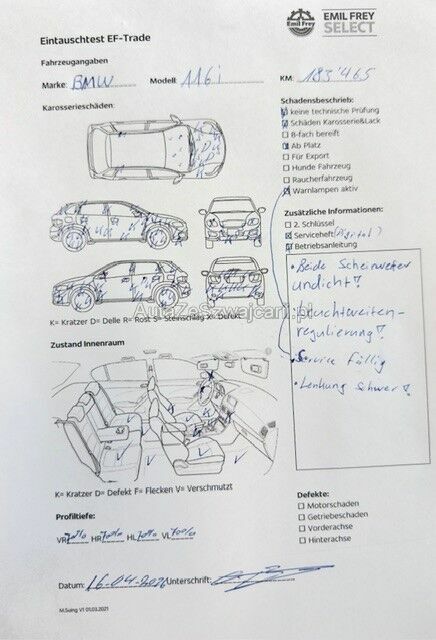 Emil Frey
EMIL FREY
SELECT
Eintauschtest EF-Trade
Fahrzeugangaben
Marke: BMW Modell: 116i KM: 183'465
Karosserieschäden:
Schadensbeschrieb:
keine technische Prüfung
Schäden Karosserie&Lack
8-fach bereift
Ab Platz
Für Export
Hunde Fahrzeug
Raucherfahrzeug
Warnlampen aktiv
Zusätzliche Informationen:
2. Schlüssel
Serviceheft (Digital)
Betriebsanleitung
• Beide Scheinwerfer
undicht!
• Leuchtweiten-
regulierung!
• Service fällig
• Lenkung schwer!
AutaZeSzwajcarii.pl
K= Kratzer D= Delle R= Rost S= Steinschlag X= Defekt
Zustand Innenraum
K= Kratzer D= Defekt F= Flecken V= Verschmutzt
Profiltiefe:
VR HR HL VL
Defekte:
Motorschaden
Getriebeschaden
Vorderachse
Hinterachse
Datum: 16-04-2026 Unterschrift:
M.Suing V1 01.03.2021